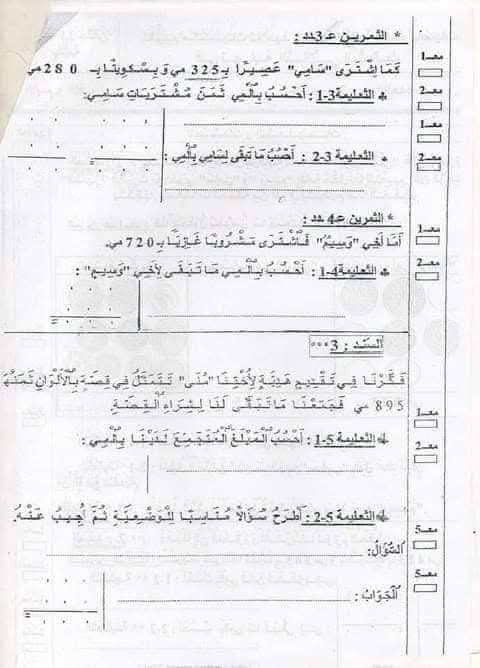 * التمرين عـ3ـدد :
كَمَا اِشْتَرَى "سَامِي" عَصِيرًا بِـ 325 مي وَ بِسْكُوِيتًا بِـ 280 مي
التعليمة 3-1 : أَحْسُبُ بِالْمِي ثَمَنَ مُشْتَرَيَاتِ سَامِي:
التعليمة 3-2 : أَحْسُبُ مَا تَبَقَّى لِسَامِي بِالْمِي :
* التمرين عـ4ـدد :
أَمَّا أَخِي "وَسِيمُ" فَاشْتَرَى مَشْرُوبًا غَازِيًّا بِـ 720 مي.
التعليمة 4-1 : أَحْسُبُ بِالْمِي مَا تَبَقَّى لِأَخِي "وَسِيم" :
السند : 3 ***
فَكَّرْنَا فِي تَقْدِيمِ هَدِيَّةٍ لِأُخْتِنَا "مُنَى" تَتَمَثَّلُ فِي قِصَّةٍ بِالْأَلْوَانِ ثَمَنُهَا
895 مي فَجَمَعْنَا مَا تَبَقَّى لَنَا لِشِرَاءِ الْقِصَّةِ.
التعليمة 5-1 : أَحْسُبُ الْمَبْلَغَ الْمُتَجَمِّعَ لَدَيْنَا بِالْمِي :
التعليمة 5-2 : أَطْرَحُ سُؤَالًا مُنَاسِبًا لِلْوَضْعِيَّةِ ثُمَّ أُجِيبُ عَنْهُ.
السُّؤَالُ:
الْجَوَابُ :
معـ1
معـ2
معـ1
معـ2
معـ1
معـ2
معـ1
معـ2
معـ5
معـ5